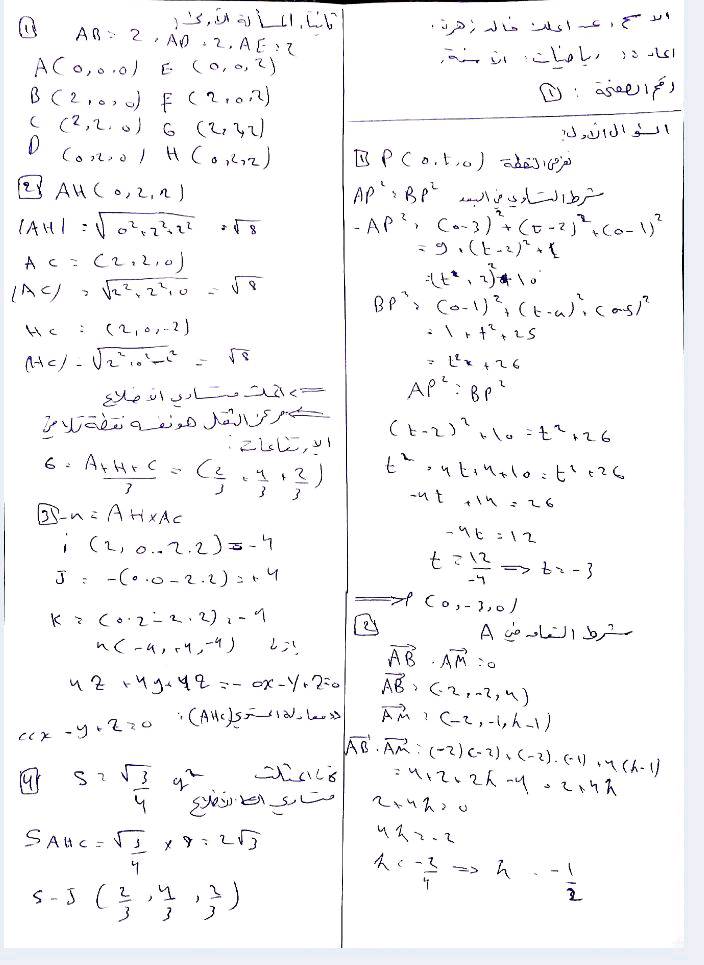 الاسم: عبد
مادة: رياضيات:
رقم الصفحة: ①
السؤال الأول:
① P(0,t,0) نفرض النقطة
AP² = BP² شرط التساوي في البعد
- AP² = (0-3)² + (t-2)² + (0-1)²
= 9 + (t-2)² + 1
= (t-2)² + 10
BP² = (0-1)² + (t-0)² + (0-5)²
= 1 + t² + 25
= t² + 26
AP² = BP²
(t-2)² + 10 = t² + 26
t² - 4t + 4 + 10 = t² + 26
-4t + 14 = 26
-4t = 12
t = 12/-4 ⇒ t = -3
⇒ P(0,-3,0)
② شرط التعامد في A
AB . AM = 0
AB = (-2,-2,4)
AM = (-2,-1,h-1)
AB . AM = (-2)(-2) + (-2).(-1) + 4(h-1)
= 4 + 2 + 4h - 4 = 2 + 4h
2 + 4h = 0
4h = -2
h = -2/4 ⇒ h = -1/2
ثانياً: المسألة الأولى:
① AB = 2, AD = 2, AE = 2
A(0,0,0) E(0,0,2)
B(2,0,0) F(2,0,2)
C(2,2,0) G(2,2,2)
D(0,2,0) H(0,2,2)
② AH(0,2,2)
|AH| = √0²+2²+2² = √8
AC = (2,2,0)
|AC| = √2²+2²+0 = √8
HC = (2,0,-2)
|HC| = √2²+0²-2² = √8
⇐ المثلث متساوي الأضلاع
⇐ مركز الثقل هو نفسه نقطة تلاقي
الارتفاعات:
G = A+H+C/3 = (2/3, 4/3, 2/3)
③ -n = AH×AC
i (2.0-2.2) = -4
J = -(0.0-2.2) = +4
K = (0.2-2.2) = -4
n(-4,+4,-4)
4Z + 4y + 4Z = -0x-y+Z=0
x-y+Z=0 معادلة المستوي (AHC):
④ S = √3/4 a² المثلث
متساوي الأضلاع
S AHC = √3/4 × 8 = 2√3
S-J (2/3, 4/3, 2/3)